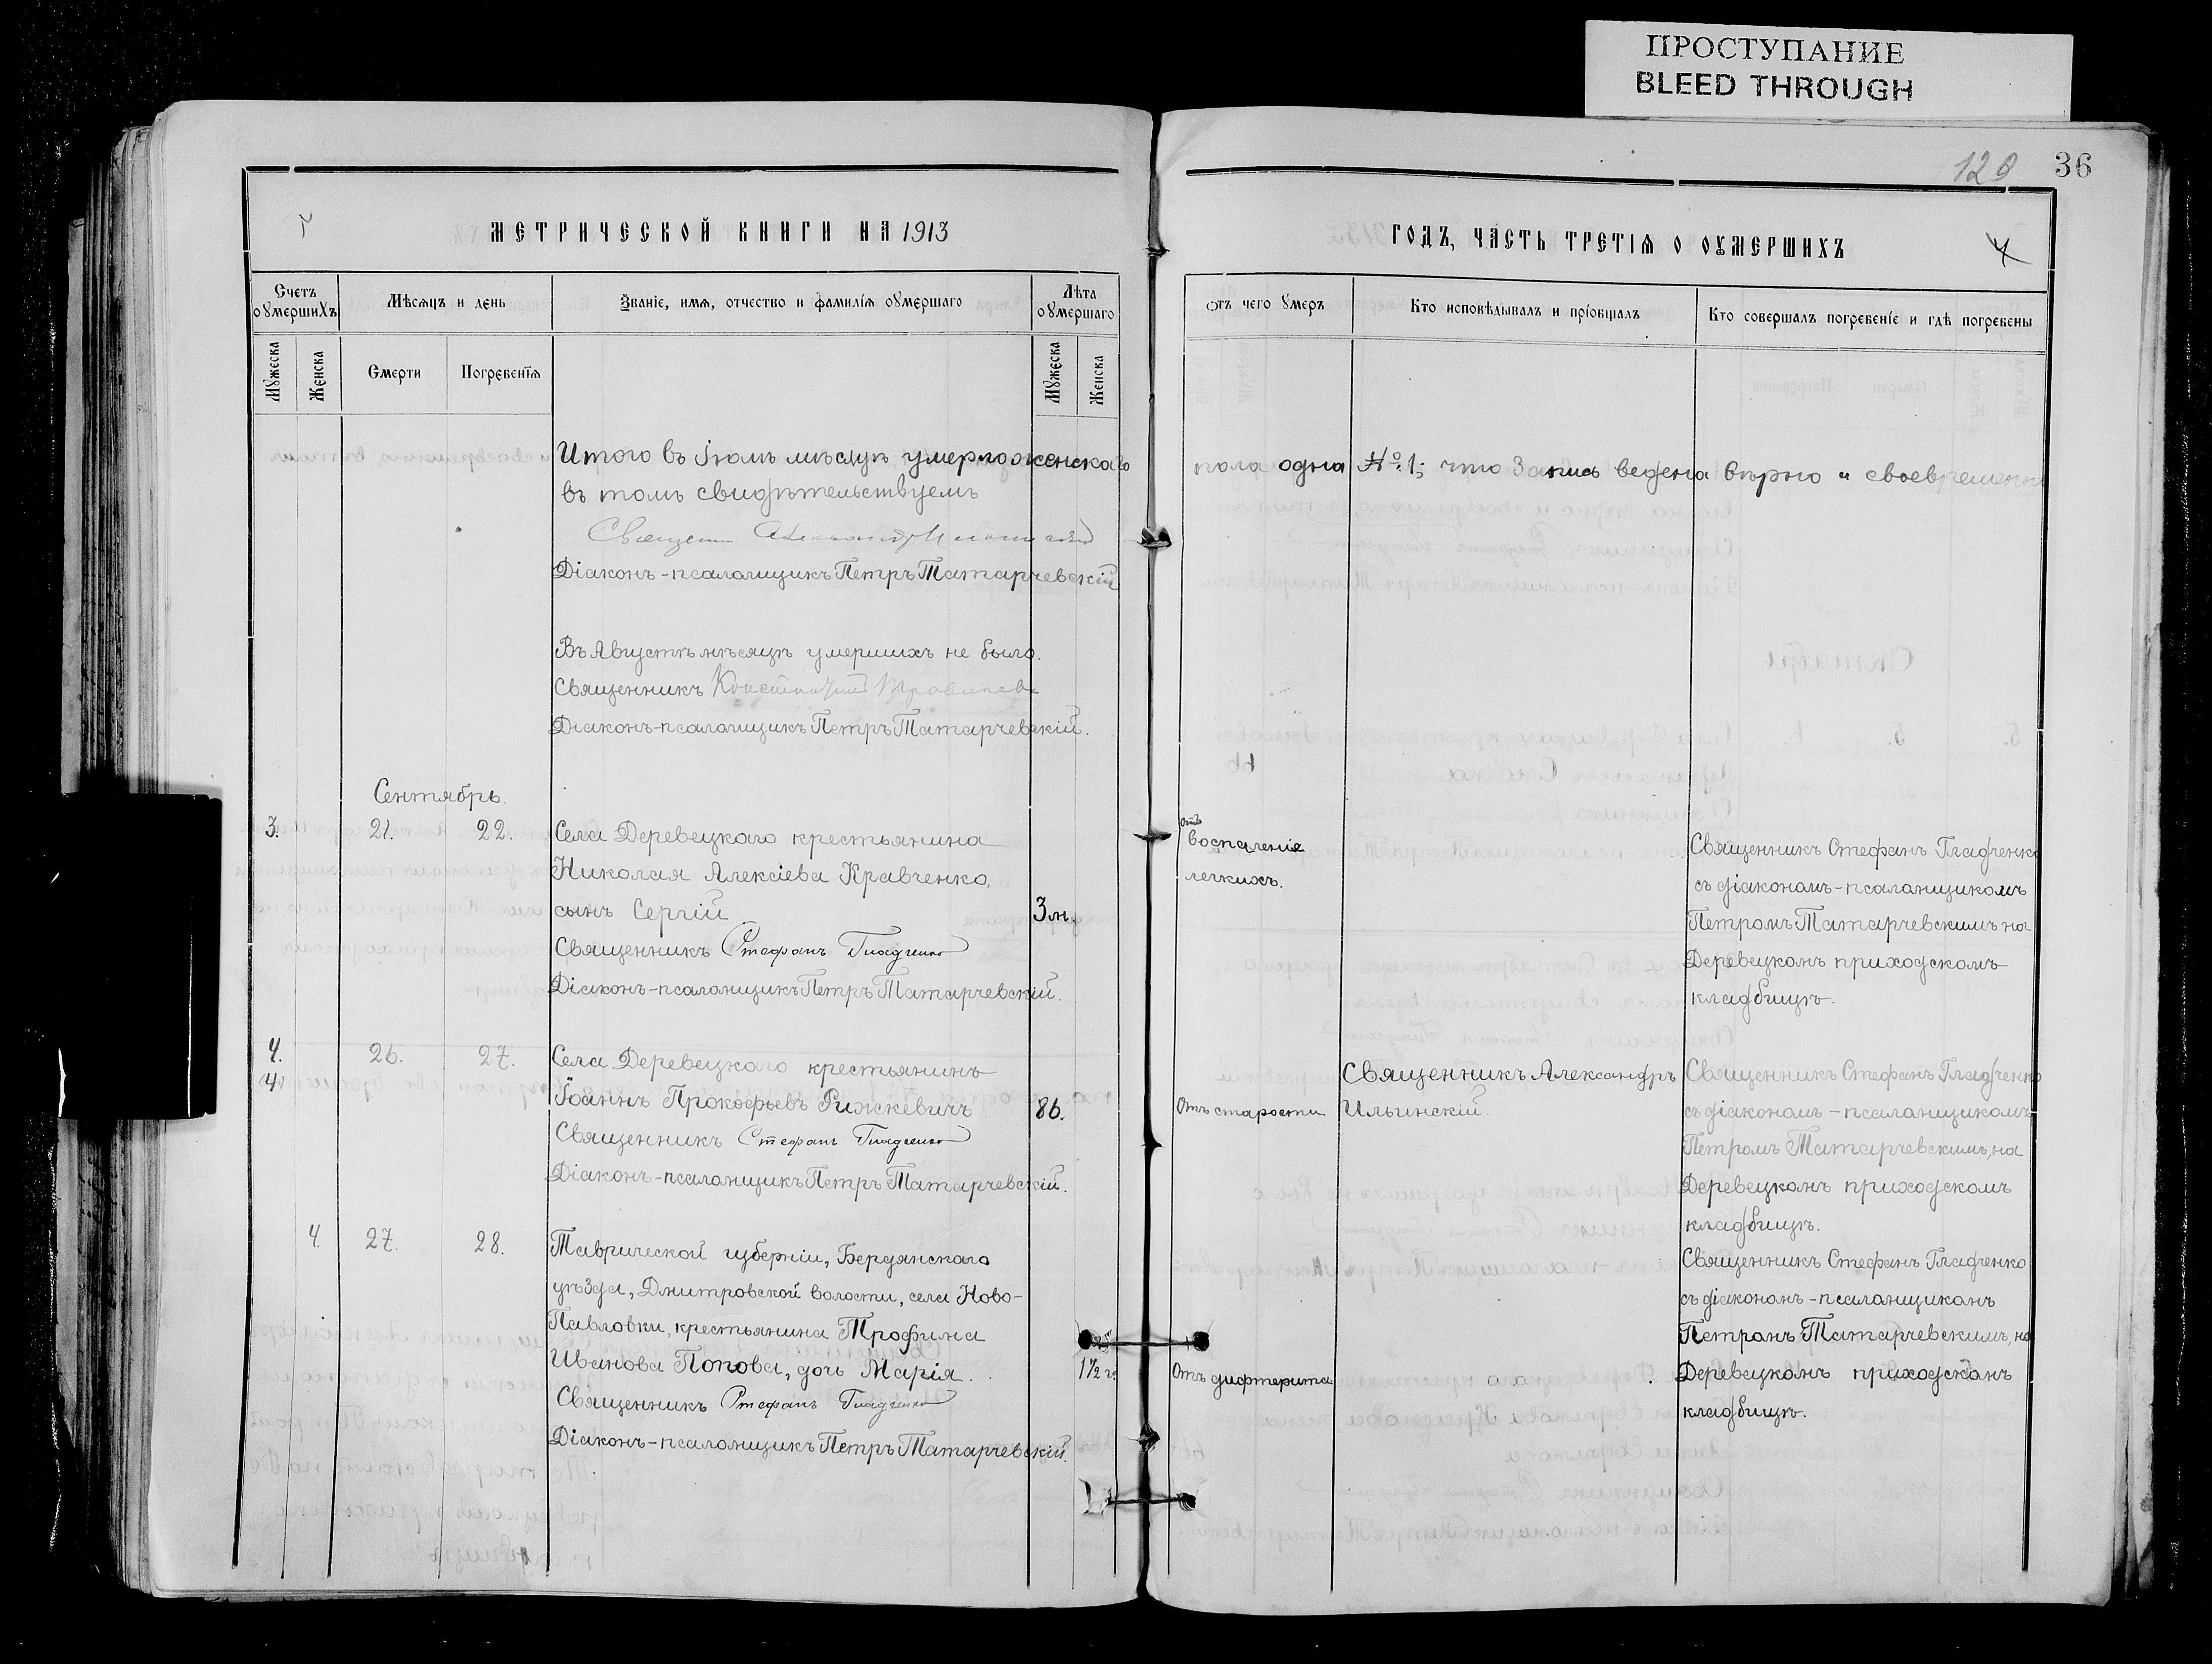 ПРОСТУПАНИЕ
BLEED THROUGH
120 36
МЕТРИЧЕСКОЙ КНИГИ НА 1913
Счетъ оумершихъ
Мѣсяцъ и день
Званіе, имя, отчество и фамилія оумершаго
Лѣта оумершаго
Мужеска
Женска
Смерти
Погребенїя
Мужеска
Женска
Итого въ Іюлѣ мѣсяцѣ умерло женскаго
въ томъ свидѣтельствуемъ
Діаконъ-псаломщикъ Петръ Татарчевскій
Въ Августѣ мѣсяцѣ умершихъ не было.
Священникъ
Діаконъ-псаломщикъ Петръ Татарчевскій.
Сентябрь.
3. 21. 22. Села Деревецкаго крестьянина
Николая Алексіева Кравченко,
сынъ Сергій 3 м.
Священникъ Стефанъ Гладченко
Діаконъ-псаломщикъ Петръ Татарчевскій.
4. 26. 27. Села Деревецкаго крестьянинъ
Іоаннъ Прокофьевъ Рижкевичъ 86.
Священникъ Стефанъ Гладченко
Діаконъ-псаломщикъ Петръ Татарчевскій.
4. 27. 28. Таврической губерніи, Бердянскаго
уѣзда, Дмитровской волости, села Ново-
Павловки, крестьянина Трофима
Иванова Попова, дочь Марія. 1½ г.
Священникъ Стефанъ Гладченко
Діаконъ-псаломщикъ Петръ Татарчевскій.
ГОДЪ, ЧАСТЬ ТРЕТІЯ О ОУМЕРШИХЪ
Отъ чего умеръ
Кто исповѣдывалъ и пріобщалъ
Кто совершалъ погребеніе и гдѣ погребены
пола одна № 1; что Запись ведена вѣрно и своевременно
Отъ
воспаленіе
легкихъ.
Священникъ Стефанъ Гладченко
съ діакономъ-псаломщикомъ
Петромъ Татарчевскимъ на
Деревецкомъ приходскомъ
кладбищѣ.
Отъ старости
Священникъ Александръ
Ильинскій
Священникъ Стефанъ Гладченко
съ діакономъ-псаломщикомъ
Петромъ Татарчевскимъ, на
Деревецкомъ приходскомъ
кладбищѣ.
Отъ дифтерита
Священникъ Стефанъ Гладченко
съ діакономъ-псаломщикомъ
Петромъ Татарчевскимъ, на
Деревецкомъ приходскомъ
кладбищѣ.